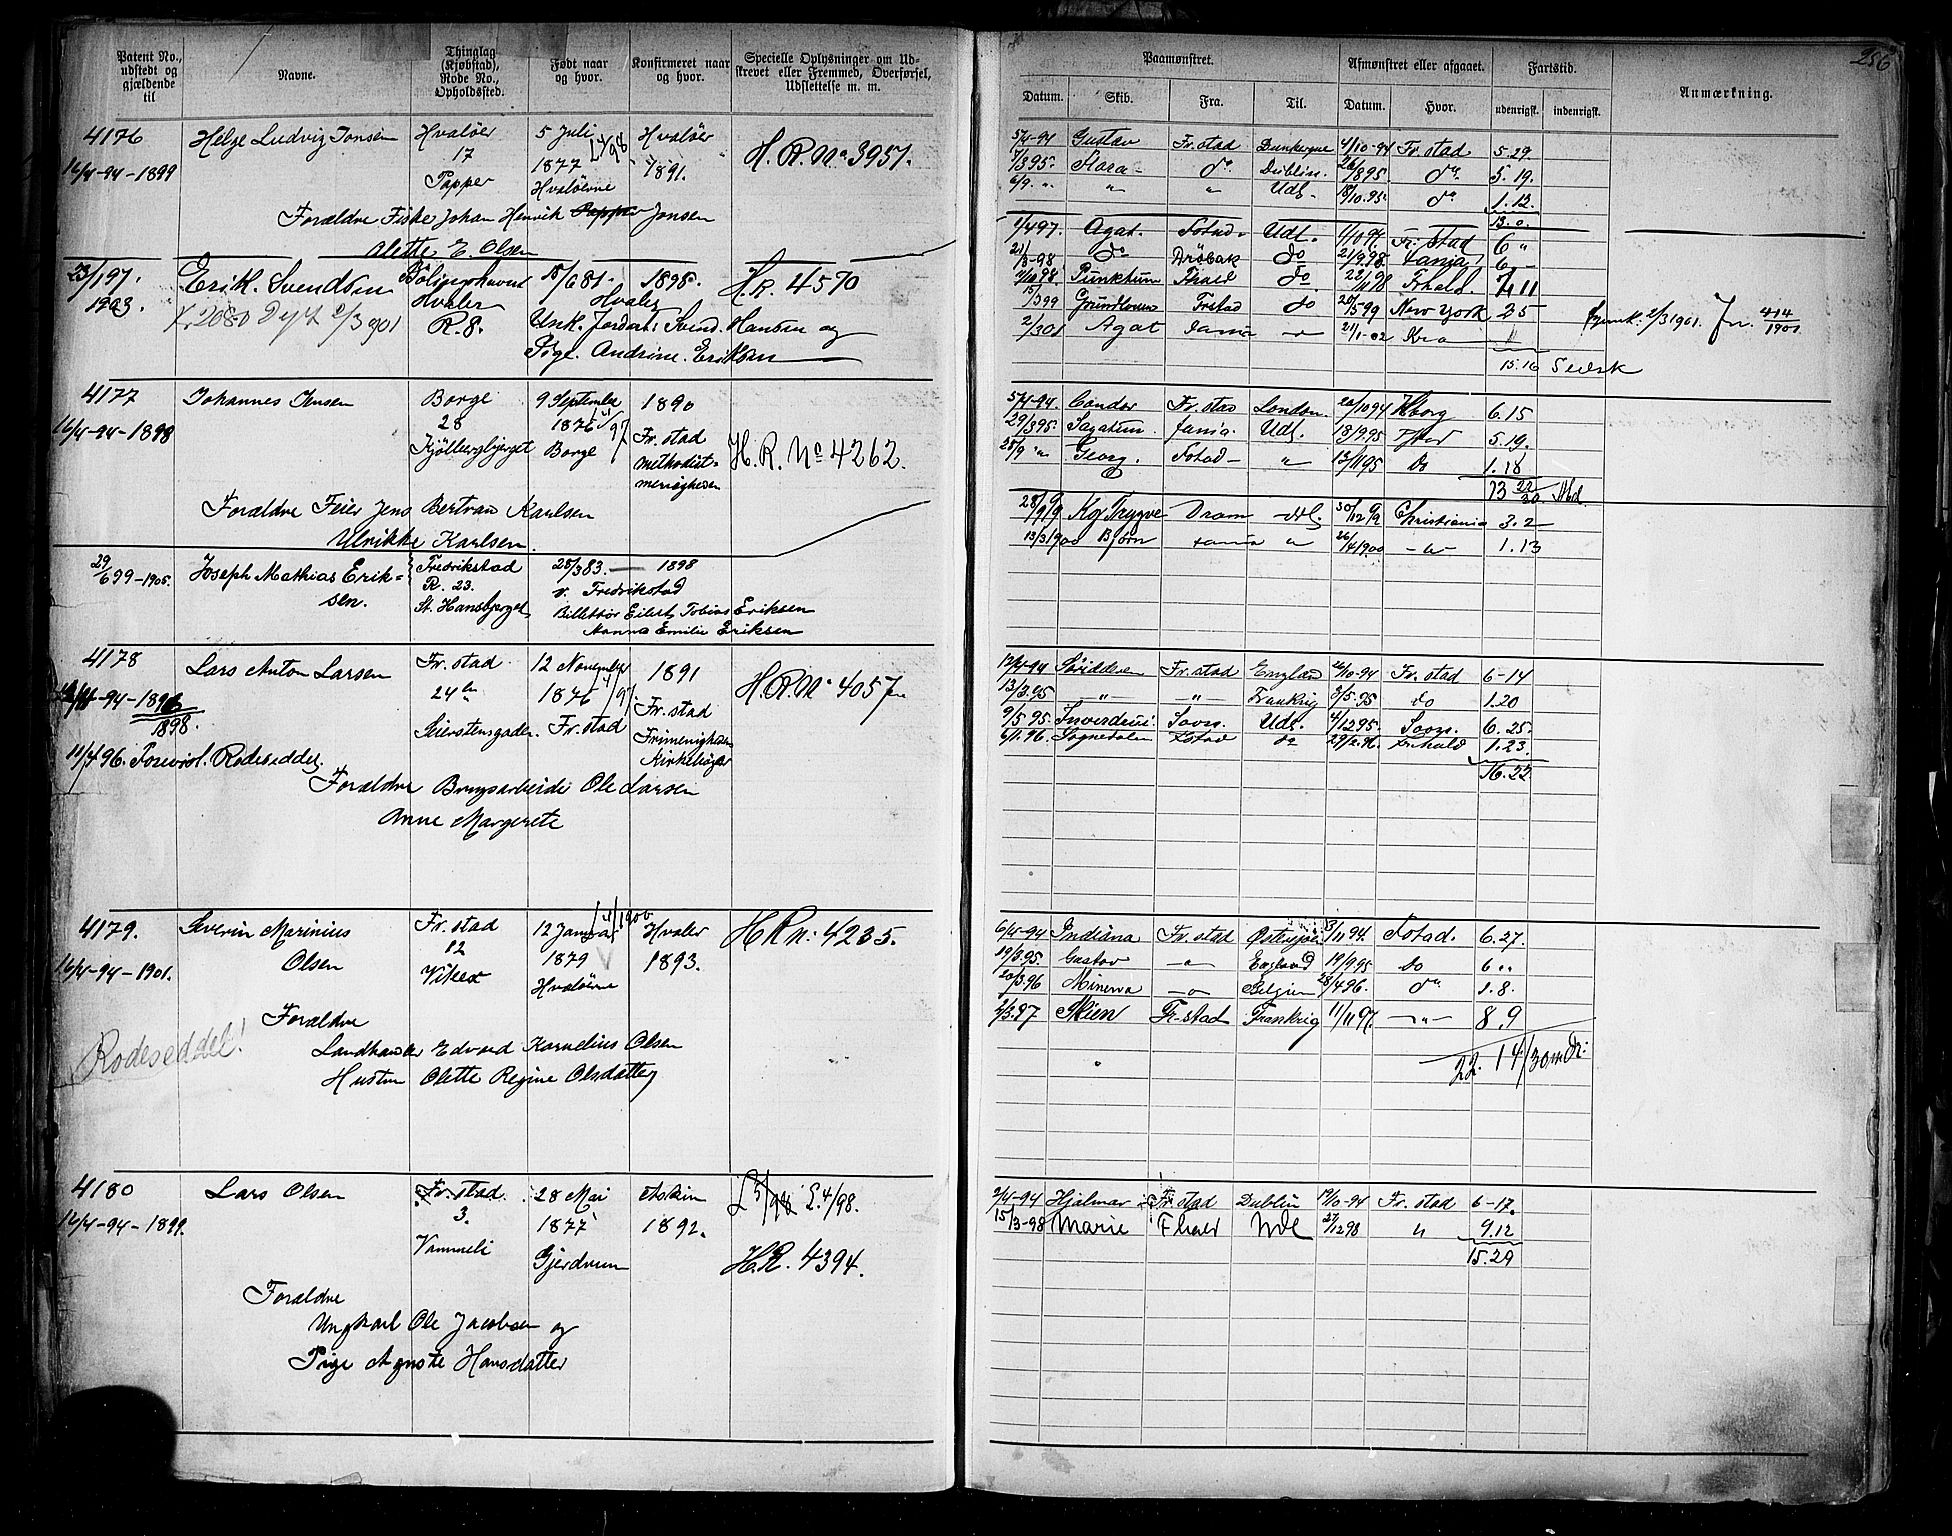 256
Patent No., udstedt og gjældende til
Navne.
Thinglag (Kjøbstad), Rode No., Opholdssted.
Født naar og hvor.
Konfirmeret naar og hvor.
Specielle Oplysninger om Udskrevet eller Fremmed, Overførsel, Udslettelse m. m.
Paamønstret.
Afmønstret eller afgaaet.
Fartstid.
Anmærkning.
Datum. Skib. Fra. Til. Datum. Hvor. udenrigsk. indenrigsk.
4176 Helge Ludvig Jonsen Hvaløer 5 Juli Hvaløer H. R. No 3957.
17 1877 1891.
16/4-94-1899 Papper Hvaløerne
Forældre Fisker Johan Henrik Papper Jonsen
Olette E. Olsen
5/4-94 Gustav Fr.stad Dunkerque 4/10-94 Fr.stad 5.29
Flora do Dublin 26/8 95 do 5.19.
6/9 " " " Udl. 18/10.95 do 1.13.
13.0.
23/1 97. Erik Svendsen 18/6 81. 1898. H.R. 4570
1903. Hvaler Hvaler
R. 8. Unk. Jordarb. Svend Hansen og
Pige Andrine Eriksen
1/4 97. Agat. Fstad. Udl. 1/10 97. Fr.stad 6 "
21/3-98 do Drøbak do 21/9 98.
Punktum Fhald do 22/11 98 Frhald. 7.11
Frstad do New York 25
2/3 01 Agat 21/1-02 Kra
15.16 Seilsk
2/3 1901. Jn. 414/1901
4177 Johannes Jensen Borge 9 September 1890
28 1876 Fr.stad
16/4-94-1898 Kjølbergbjerget Borge methodist- H.R. No 4262.
menigheden
Forældre Feier Jens Bertran Karlsen
Ulrikke Karlsen.
5/4-94. Condor Fr.stad London. 20/10 94 6.15
29/3 95. Sagatun. Udl. 18/9.95 5.19.
25/9 " Georg. Fstad " 13/11 95 do 1.18
13 22/30 Md.
28/9 99 Kg Trygve Dram Udl. 30/12 99 Christiania 3.2
13/3 1900 Bjørn " 26/4 1900 -"- 1.13
29/6 99-1905. Joseph Mathias Erik- Fredrikstad 28/3 83. 1898
sen. R. 23. v. Fredrikstad
St. Hansbjerget Billettør Eilert Tobias Eriksen
Nanna Emilie Eriksen
4178 Lars Anton Larsen Fr.stad 12 November 1891 H.R. No 4057
24 1876 Fr.stad
1898. Fr.stad Frimenigheden
11/4 96. Forevist Rodeseddel. Kirkebøger
Forældre Brugsarbeider Ole Larsen
Anne Margrete
12/4-94 Fr.stad England 10-94 Fr.stad 6-14
13/3.95 -"- -"- Frankrig 3/5.95 do 1.20
9/5.95. Udl. 4/12 95. 6.25.
6/1.96. Sognedalen Fstad do Frhald 1.23.
16.22
4179. Severin Marinius Fr.stad 12 Januar Hvaler H.R n: 4235.
Olsen 12 1879 1893.
16/4-94-1901. Hvaløerne
Forældre
Landhandler Edvard Kornelius Olsen
Hustru Olette Regine Olsdatter
Rodeseddel!
6/4-94 Indiana Fr.stad 3/11 94. Fstad. 6.27.
19/3.95. Gustav -"- England 19/9.95 do 6 "
20/3.96 Minerva -"- Belgien 28/4 96. do 1.8.
2/3.97 Skien Fr-stad Frankrig 11/11 97. -"- 8.9
22. 14/30 mdr:
4180 Lars Olsen Fr.stad. 28 Mai Askim L 4/98.
3. 1877 1892.
16/4-94-1899. Gjerdrum H.R. 4394.
Forældre
Ungkarl Ole Jacobsen og
Pige Agnste Hansdatter
9/4-94 Hjalmar Fr.stad Dublin 19/10-94 Fr.stad 6-17.
15/3-98 Marie Fhald Udl 27/12 98 " 9.12
15.29